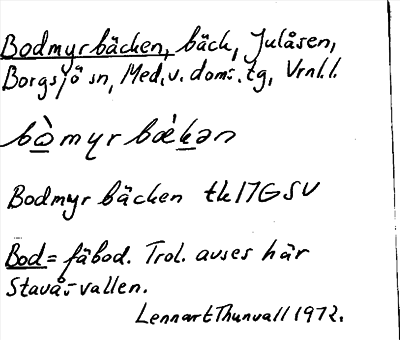 Bodmyrbäcken, bäck, Julåsen,
Borgsjö sn, Med.v. doms. tg, Vrnl.l.
bò̲myrbæ̀k̲ən
Bodmyrbäcken tk17GSV
Bod = fäbod. Trol. avses här
Stavå-vallen.
Lennart Thunvall 1972.